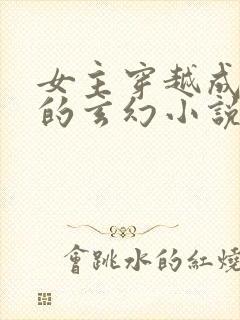 女主穿越成
的玄幻小說
會跳水的紅燒